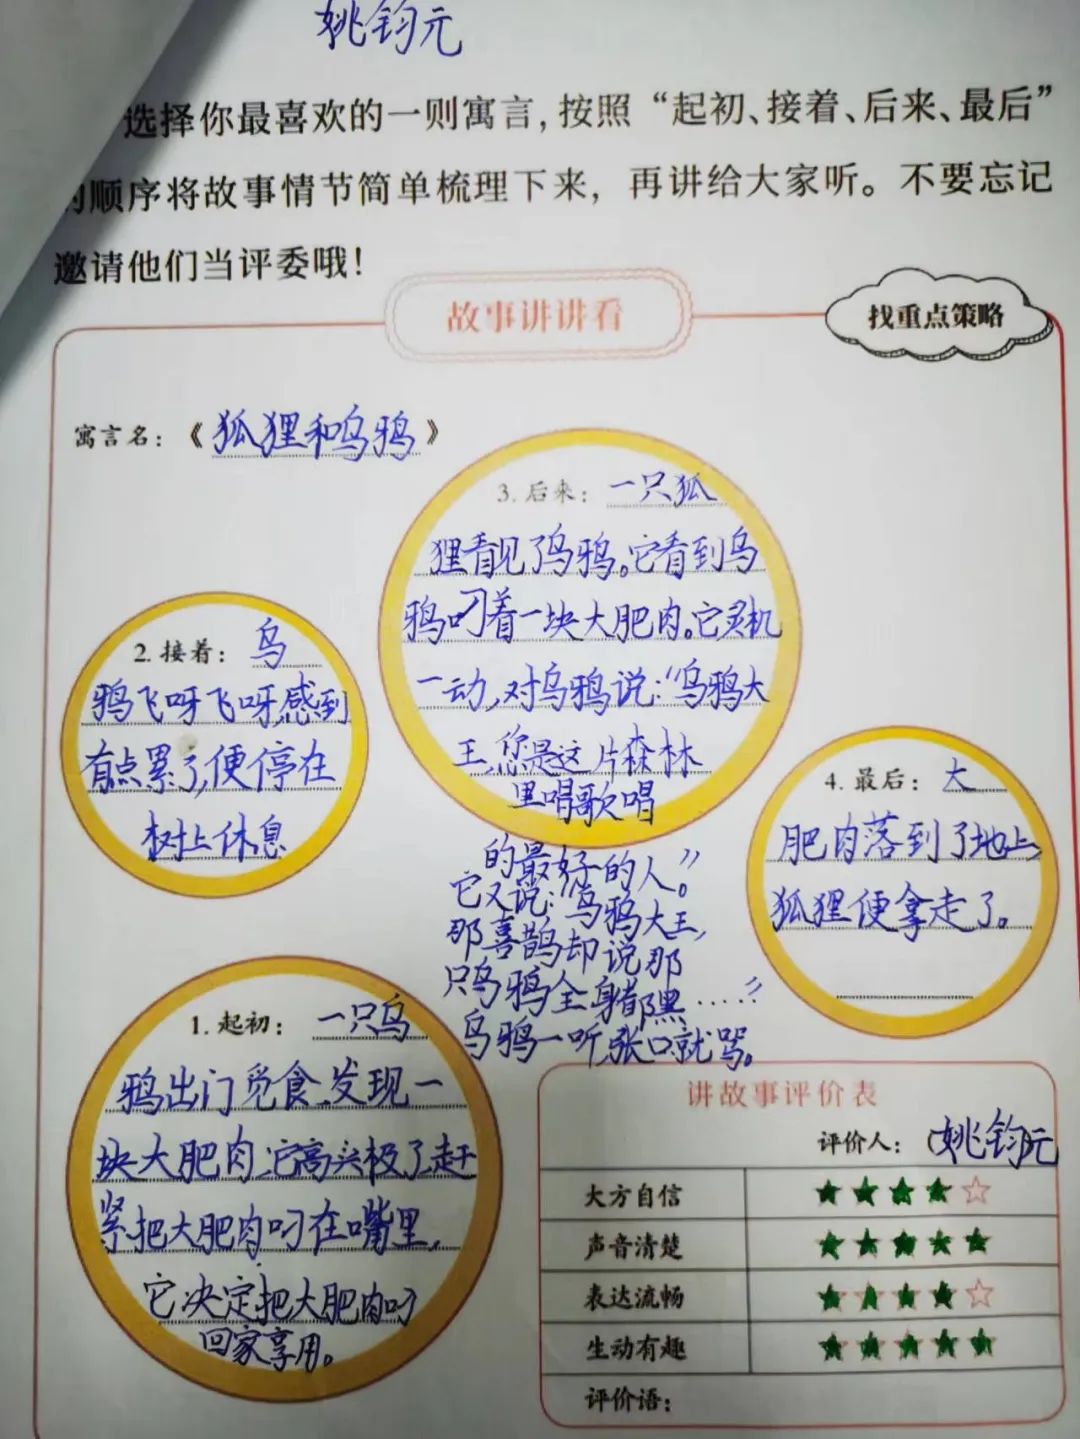 姚钧元
选择你最喜欢的一则寓言，按照“起初、接着、后来、最后”
的顺序将故事情节简单梳理下来，再讲给大家听。不要忘记
邀请他们当评委哦！
故事讲讲看
找重点策略
寓言名：《狐狸和乌鸦》
1. 起初：一只乌
鸦出门觅食，发现一
块大肥肉，它高兴极了，赶
紧把大肥肉叼在嘴里，
它决定把大肥肉叼
回家享用。
2. 接着：乌
鸦飞呀飞呀，感到
有点累了，便停在
树上休息
3. 后来：一只狐
狸看见了乌鸦。它看到乌
鸦叼着一块大肥肉。它灵机
一动，对乌鸦说：“乌鸦大
王，您是这片森林
里唱歌唱
的最好的人。”
它又说：“乌鸦大王，
那喜鹊却说那
只乌鸦全身都黑……”
乌鸦一听，张口就骂。
4. 最后：大
肥肉落到了地上，
狐狸便拿走了。
讲故事评价表
评价人：姚钧元
大方自信
声音清楚
表达流畅
生动有趣
评价语：